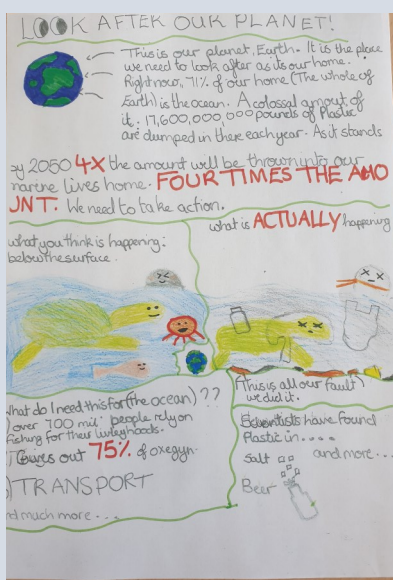 LOOK AFTER OUR PLANET!
This is our planet, Earth. It is the place
we need to look after as its our home.
Right now, 71% of our home (The whole of
Earth) is the ocean. A colossal amount of
it. 17,600,000,000 pounds of Plastic
are dumped in there each year. As it stands
by 2050 4X the amount will be thrown into our
marine lives home. FOUR TIMES THE AMO
UNT. We need to take action.
what you think is happening:
below the surface.
what is ACTUALLY happening
(This is all our fault)
we did it.
What do I need this for (the ocean) ??
) over 700 mil' people rely on
fishing for their livleyhoods.
) Gives out 75% of oxegyn.
) TRANSPORT
nd much more . . .
Scientists have found
Plastic in . . . .
Salt
and more . . .
Beer